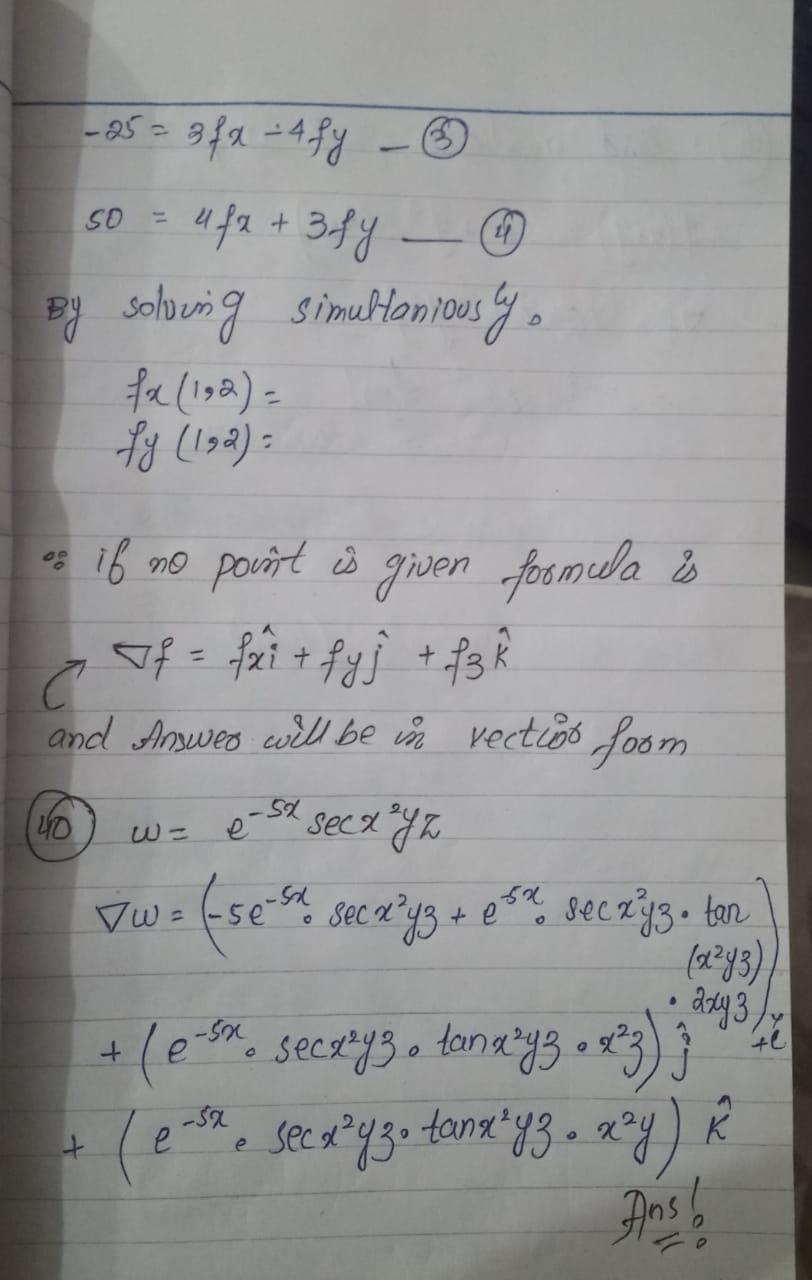 -25 = 3fx - 4fy — ③
50 = 4fx + 3fy — ④
By solving simultaniously.
fx (1,2) =
fy (1,2) =
∴ if no point is given formula is
∇f = fxî + fyĵ + fzk̂
and Answer will be in vector form
40 w = e⁻⁵ˣ secx²yz
∇w = (-5e⁻⁵ˣ. secx²yz + e⁵ˣ. secx²yz . tan
(x²yz)
. 2xyz) î
+ (e⁻⁵ˣ. secx²yz . tanx²yz . x²z) ĵ
+ (e⁻⁵ˣ. secx²yz . tanx²yz . x²y) k̂
Ans!